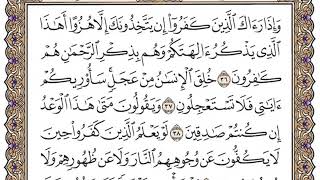 وَإِذَا رَءَاكَ ٱلَّذِينَ كَفَرُوٓا۟ إِن يَتَّخِذُونَكَ إِلَّا هُزُوًا أَهَٰذَا
ٱلَّذِى يَذْكُرُ ءَالِهَتَكُمْ وَهُم بِذِكْرِ ٱلرَّحْمَٰنِ هُمْ
كَٰفِرُونَ ٣٦ خُلِقَ ٱلْإِنسَٰنُ مِنْ عَجَلٍ سَأُو۟رِيكُمْ
ءَايَٰتِى فَلَا تَسْتَعْجِلُونِ ٣٧ وَيَقُولُونَ مَتَىٰ هَٰذَا ٱلْوَعْدُ
إِن كُنتُمْ صَٰدِقِينَ ٣٨ لَوْ يَعْلَمُ ٱلَّذِينَ كَفَرُوا۟ حِينَ
لَا يَكُفُّونَ عَن وُجُوهِهِمُ ٱلنَّارَ وَلَا عَن ظُهُورِهِمْ وَلَا